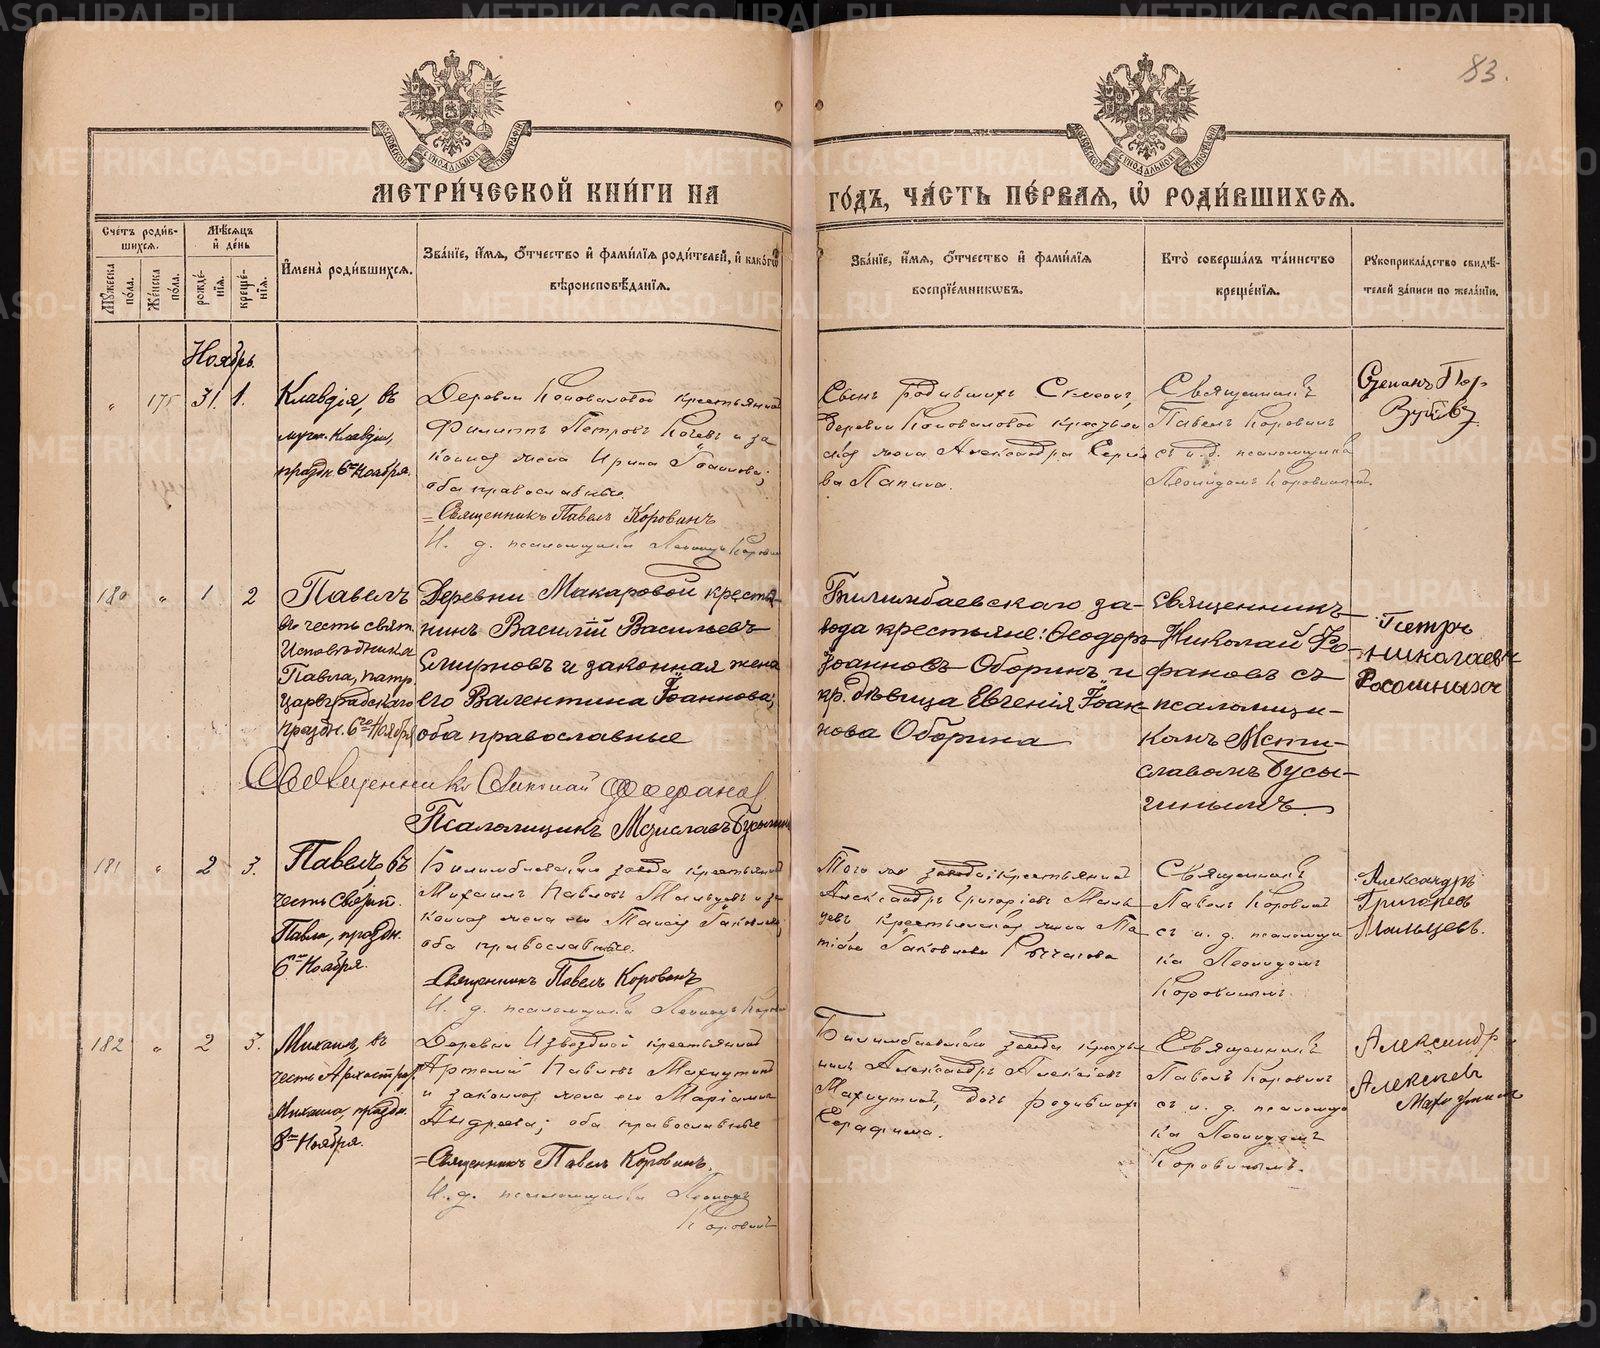 83.
МОСКОВСКОЙ СѴНОДАЛЬНОЙ ТИПОГРАФІИ
МОСКОВСКОЙ СѴНОДАЛЬНОЙ ТИПОГРАФІИ
МЕТРИ́ЧЕСКОЙ КНИ́ГИ НА
ГО́ДЪ, ЧА́СТЬ ПЕ́РВАЯ, Ѽ РОДИ́ВШИХСЯ.
Сче́тъ роди́в-
шихся.
Мѣ́сяцъ
и҆ де́нь
Му́жеска
по́ла.
Же́нска
по́ла.
рожде́-
нїя.
креще́-
нїя.
И҆мена̀ роди́вшихся.
Зва́нїе, и҆́мя, ѻ҆́тчество и҆ фами́лїя роди́телей, и҆ какѡ́гѡ
вѣроисповѣ́данїя.
Зва́нїе, и҆́мя, ѻ҆́тчество и҆ фами́лїя
воспрїе́мникѡвъ.
Кто̀ соверша́лъ та́инство
креще́нїя.
Рукоприкла́дство свидѣ́-
телей за́писи по жела́нїю.
Ноябрь.
" 175 31. 1.
Клавдія, въ
муч. Клавдіи,
праздн. 6го Ноября.
Деревни Коноваловой крестьянинъ
Филиппъ Петровъ и за
конная жена Ирина Іоаннова;
оба православные.
Священникъ Павелъ Коровинъ
И. д. псаломщика Леонидъ Коровинъ
Сынъ родившихъ
деревни Коноваловой крестьян
ская жена Александра
ва Папина.
Священникъ
Павелъ Коровинъ
съ и. д. псаломщика
Леонидомъ Коровинымъ.
Степанъ
180 " 1 2
Павелъ
въ честь свят.
Исповѣдника
Павла, патр.
Царьградскаго
праздн. 6го Ноября
Деревни Макаровой крестья-
нинъ Василій Васильевъ
Смирновъ и законная жена
его Валентина Іоаннова;
оба православные
Священникъ Николай
Псаломщикъ Мстиславъ Бусыгинъ
Билимбаевскаго за-
вода крестьяне: Ѳеодоръ
Іоанновъ Оборинъ и
кр. дѣвица Евгенія Іоан-
нова Оборина
Священникъ
Николай Фо-
фановъ съ
псаломщи-
комъ Мсти-
славомъ Бусы-
гинымъ
Петръ
Николаевъ
Росомныхъ
181 " 2 3.
Павелъ, въ
честь Святит.
Павла, праздн.
6го Ноября.
Билимбаевскаго завода крестьянинъ
Михаилъ Павловъ Мальцевъ и за
конная жена его Таисія Іаковлева;
оба православные.
Священникъ Павелъ Коровинъ
И. д. псаломщика Леонидъ Коровинъ
Того же завода: крестьянинъ
Александръ Григоріевъ Маль
цевъ крестьянская жена
Іаковлева
Священникъ
Павелъ Коровинъ
съ и. д. псаломщи
ка Леонидомъ
Коровинымъ.
Александръ
Григорьевъ
Мальцевъ.
182 " 2 3.
Михаилъ, въ
честь Архистрат.
Михаила, праздн.
8го Ноября.
Деревни Извѣздной крестьянинъ
Артемій Павловъ Махнутинъ
и законная жена его Маріамна
Андреева; оба православные
Священникъ Павелъ Коровинъ.
И. д. псаломщика Леонидъ
Коровинъ
Билимбаевскаго завода крестья
нинъ Александръ Алексіевъ
Махнутинъ, дочь родившихъ
Серафима.
Священникъ
Павелъ Коровинъ
съ и. д. псаломщи
ка Леонидомъ
Коровинымъ.
Александръ
Алексѣевъ
Махнутинъ
METRIKI.GASO-URAL.RU